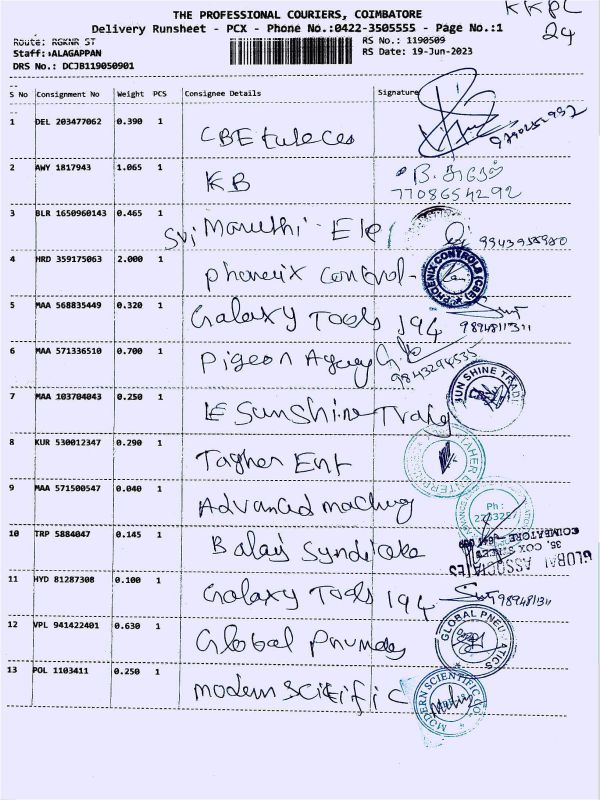 THE PROFESSIONAL COURIERS, COIMBATORE
KKPL
Delivery Runsheet - PCX - Phone No.:0422-3505555 - Page No.:1
24
Route: RGKNR ST
RS No.: 1190509
Staff:ALAGAPPAN
RS Date: 19-Jun-2023
DRS No.: DCJB119050901
S No Consignment No Weight PCS Consignee Details Signature
1 DEL 203477062 0.390 1
2 AWY 1817943 1.065 1 KB
7708654292
3 BLR 1650960143 0.465 1 Sri Maruthi Ele
4 HRD 359175063 2.000 1 Phoenix Control
PHOENIX CONTROLS (CBE)
5 MAA 568835449 0.320 1 Galaxy Tools 194
6 MAA 571336510 0.700 1 Pigeon Agency
9843294535
7 MAA 103704043 0.250 1 Sunshine Tradg
SUN SHINE TRADI
8 KUR 530012347 0.290 1 Tagher Ent
9 MAA 571500547 0.040 1 Advanced
Ph:
10 TRP 5884047 0.145 1 Balaji Syndicate
GLOBAL ASSOCIATES
35, COX STREET
COIMBATORE
11 HYD 81287308 0.100 1 Galaxy Tools 194
12 VPL 941422401 0.630 1 Global
GLOBAL PNEUMATICS
13 POL 1103411 0.250 1 modern Scietific
MODERN SCIENTIFIC CO